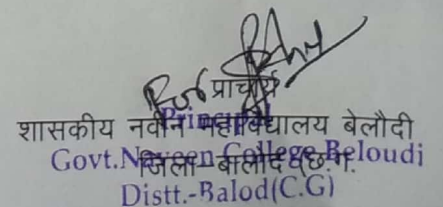 प्राचार्य
Principal
शासकीय नवीन महाविद्यालय बेलौदी
Govt.Naveen College Beloudi
जिला-बालोद (छ.ग.
Distt.-Balod(C.G)